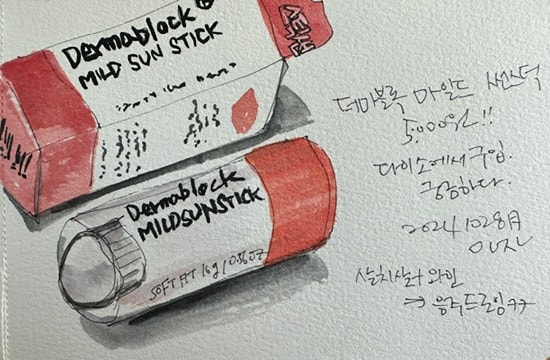 Dermablock
MILD SUN STICK
Dermablock
MILDSUNSTICK
SOFT FIT 16g / 0.56 OZ
더마블록 마일드 썬스틱
5,000원!!
다이소에서 구입.
궁금하다.
살치살과 와인
⇒ 음주드로잉ㅋㅋ